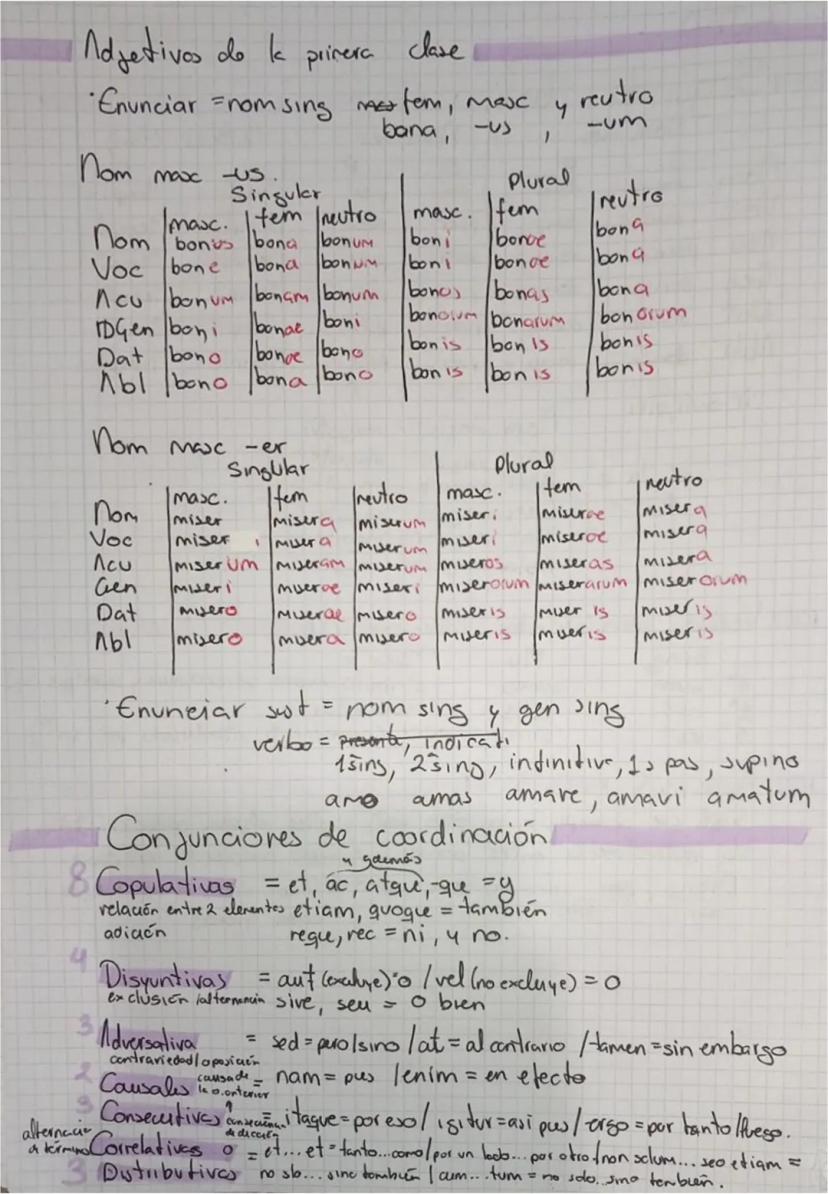 Adjetivos de la primera clase
·Enunciar = nom sing fem, masc y neutro
bona, -us, -um
Nom masc -us.
Singular Plural
masc. fem neutro masc. fem neutro
Nom bonus bona bonum boni bonae bona
Voc bone bona bonum boni bonae bona
Acu bonum bonam bonum bonos bonas bona
Gen boni bonae boni bonorum bonarum bonorum
Dat bono bonae bono bonis bonis bonis
Abl bono bona bono bonis bonis bonis
Nom masc -er
Singular Plural
masc. fem neutro masc. fem neutro
Nom miser misera miserum miseri miserae misera
Voc miser misera miserum miseri miserae misera
Acu miserum miseram miserum miseros miseras misera
Gen miseri miserae miseri miserorum miserarum miserorum
Dat misero miserae misero miseris miseris miseris
Abl misero misera misero miseris miseris miseris
·Enunciar sust = nom sing y gen sing
verbo = presente, indicati
1ªsing, 2ªsing, infinitivo, 1ª pas, supino
amo amas amare, amavi amatum
Conjunciones de coordinación
y además
8 Copulativas = et, ac, atque, -que = y
relación entre 2 elementos etiam, quoque = también
adición neque, nec = ni, y no.
4
Disyuntivas = aut (excluye) o / vel (no excluye) = o
exclusión /alternancia sive, seu = o bien
3 Adversativa = sed = pero/sino / at = al contrario / tamen = sin embargo
contrariedad/oposición
2 Causales causa de la o. anterior = nam = pues / enim = en efecto
3 Consecutivas consecuencia de decisión = itaque = por eso / igitur = asi pues / ergo = por tanto/luego.
alternancia de término Correlativas o = et... et = tanto...como/por un lado... por otro/non solum... sed etiam =
3 Distributivas no slo... sino también / cum... tum = no solo..sino tambien.